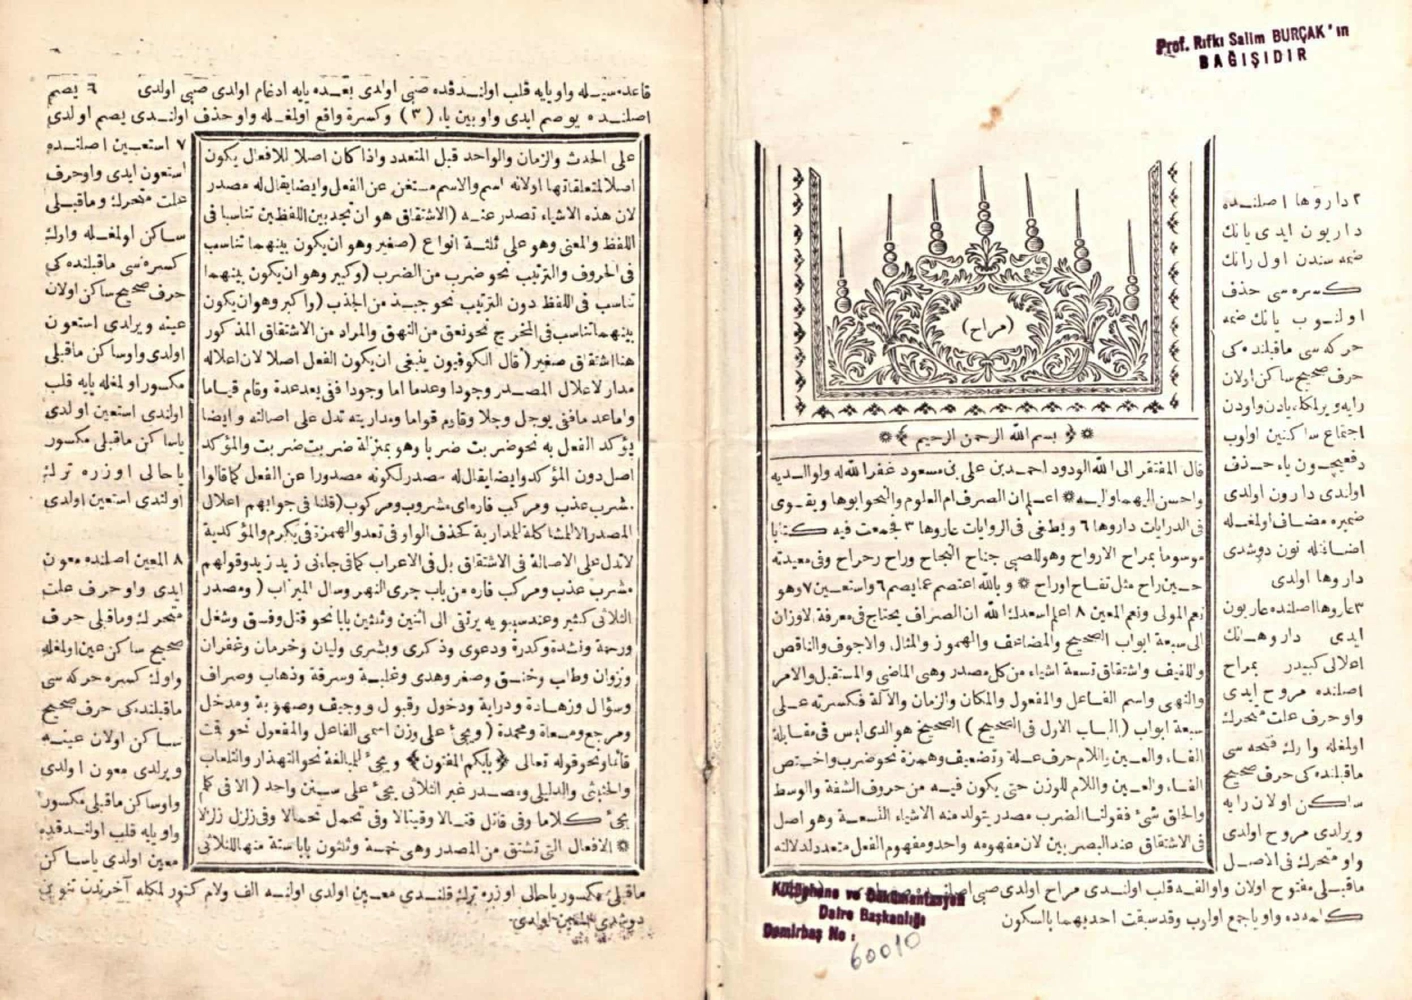 Prof. Rıfkı Salim BURÇAK'ın
BAĞIŞIDIR
(مراح)
بسم الله الرحمن الرحيم
قال المفتقر الى الله الودود احمد بن على بن مسعود غفر الله له ولوالديه
واحسن اليهما واليه اعلم ان الصرف ام العلوم والنحو ابوها ويقوى
فى الدرايات داروها ٦ ويطغى فى الروايات عاروها ٣ فجمعت فيه كتابا
موسوما بمراح الارواح وهو للصبى جناح النجاح وراح رحراح وفى معيدته
حين راح مثل تفاح او راح وبالله اعتصم عما يصم ٦ واستعين ٧ وهو
نعم المولى ونعم المعين ٨ اعلم اسعدك الله ان الصراف يحتاج فى معرفة الاوزان
الى سبعة ابواب الصحيح والمضاعف والمهموز والمثال والاجوف والناقص
واللفيف واشتقاق تسعة اشياء من كل مصدر وهى الماضى والمستقبل والامر
والنهى واسم الفاعل والمفعول والمكان والزمان والآلة فكسرته على
سبعة ابواب (الباب الاول فى الصحيح) الصحيح هو الذى ليس فى مقابلة
الفاء والعين واللام حرف علة وتضعيف وهمزة نحو ضرب واختص
الفاء والعين واللام للوزن حتى يكون فيه من حروف الشفة والوسط
والحلق شئ فقولنا الضرب مصدر يتولد منه الاشياء التسعة وهو اصل
فى الاشتقاق عند البصريين لان مفهومه واحد ومفهوم الفعل متعدد لدلالته
٢ داروها اصلنده
داريون ايدى يانك
ضمه سندن اول رانك
كسره سى حذف
اولنوب يانك ضمه
حركه سى ماقبلنده كى
حرف صحيح ساكن اولان
رايه ويرلمكله يادن واودن
اجتماع ساكنين اولوب
دفعيچون ياء حذف
اولندى دارون اولدى
ضميره مضاف اولمغله
اضافتله نون دوشدى
داروها اولدى
٣ عاروها اصلنده عاريون
ايدى داروهانك
اعلالى كبيدر بمراح
اصلنده مروح ايدى
واو حرف علت متحرك
اولمغله وارك فتحه سى
ماقبلنده كى حرف صحيح
ساكن اولان رايه
ويرلدى مروح اولدى
واو متحرك فى الاصل
ماقبلى مفتوح اولان واو الفه قلب اولندى مراح اولدى صبى
كلمه ده واو يا جمع اولرب وقد سبقت احديهما بالسكون
Kütüphane ve Dokümantasyon
Daire Başkanlığı
Demirbaş No :
60010
قاعده سيله واو يايه قلب اولندقده صبى اولدى بعده يايه ادغام اولدى صبى اولدى ٦ يصم
اصلنده يوصم ايدى واو بين ياء (٣) وكسرة واقع اولمغله واو حذف اولندى يصم اولدى
على الحدث والزمان والواحد قبل المتعدد واذا كان اصلا للافعال يكون
اصلا لمتعلقاتها اولانه اسم والاسم مستغن عن الفعل وايضا يقال له مصدر
لان هذه الاشياء تصدر عنه (الاشتقاق هو ان تجد بين اللفظين تناسبا فى
اللفظ والمعنى وهو على ثلثة انواع (صغير وهو ان يكون بينهما تناسب
فى الحروف والترتيب نحو ضرب من الضرب (وكبير وهو ان يكون بينهما
تناسب فى اللفظ دون الترتيب نحو جبذ من الجذب (واكبر وهو ان يكون
بينهما تناسب فى المخرج نحو نعق من النهق والمراد من الاشتقاق المذكور
هنا اشتقاق صغير (قال الكوفيون ينبغى ان يكون الفعل اصلا لان اعلاله
مدار لاعلال المصدر وجودا وعدما اما وجودا ففى يعد عدة وقام قياما
واما عدما ففى يوجل وجلا وقاوم قواما ومداريته تدل على اصالته وايضا
يؤكد الفعل به نحو ضربت ضربا وهو بمنزلة ضربت ضربت والمؤكد
اصل دون المؤكد وايضا يقال له مصدر لكونه مصدورا عن الفعل كما قالوا
مشرب عذب ومركب فاره اى مشروب ومركوب (قلنا فى جوابهم اعلال
المصدر للمشاكلة لا للمدارية كحذف الواو فى تعد والهمزة فى يكرم والمؤكدية
لا تدل على الاصالة فى الاشتقاق بل فى الاعراب كما فى جاءنى زيد زيد وقولهم
مشرب عذب ومركب فاره من باب جرى النهر وسال الميزاب (ومصدر
الثلاثى كثير وعند سيبويه يرتقى الى اثنين وثلثين بابا نحو قتل وفسق وشغل
ورحمة ونشدة وكدرة ودعوى وذكرى وبشرى وليان وحرمان وغفران
ونزوان وطلب وخنق وصغر وهدى وغلبة وسرقة وذهاب وصراف
وسؤال وزهادة ودراية ودخول وقبول ووجيف وصهوبة ومدخل
ومرجع ومسعاة ومحمدة (ويجئ على وزن اسمى الفاعل والمفعول نحو قمت
قائما ونحو قوله تعالى (بايكم المفتون) ويجئ للمبالغة نحو التهذار والتلعاب
والحثيثى والدليلى ومصدر غير الثلاثى يجئ على سنن واحد (الا فى كلم
يجئ كلاما وفى قاتل قتالا وقيتالا وفى تحمل تحمالا وفى زلزل زلزالا
الافعال التى تشتق من المصدر وهى خمسة وثلثون بابا ستة منها للثلاثى
٧ استعين اصلنده
استعون ايدى واو حرف
علت متحرك وماقبلى
ساكن اولمغله وارك
كسره سى ماقبلنده كى
حرف صحيح ساكن اولان
عينه ويرلدى استعون
اولدى واو ساكن ماقبلى
مكسور اولمغله يايه قلب
اولندى استعين اولدى
يا ساكن ماقبلى مكسور
يا حالى اوزره ترك
اولندى استعين اولدى
٨ المعين اصلنده معون
ايدى واو حرف علت
متحرك وماقبلى حرف
صحيح ساكن عين اولمغله
واوك كسره حركه سى
ماقبلنده كى حرف صحيح
ساكن اولان عينه
ويرلدى معون اولدى
واو ساكن ماقبلى مكسور
واو يايه قلب اولندقده
معين اولدى يا ساكن
ماقبلى مكسور يا حالى اوزره ترك قلندى معين اولدى اولنه الف ولام كتور لمكله آخرندن تنوين
دوشدى المعين اولدى